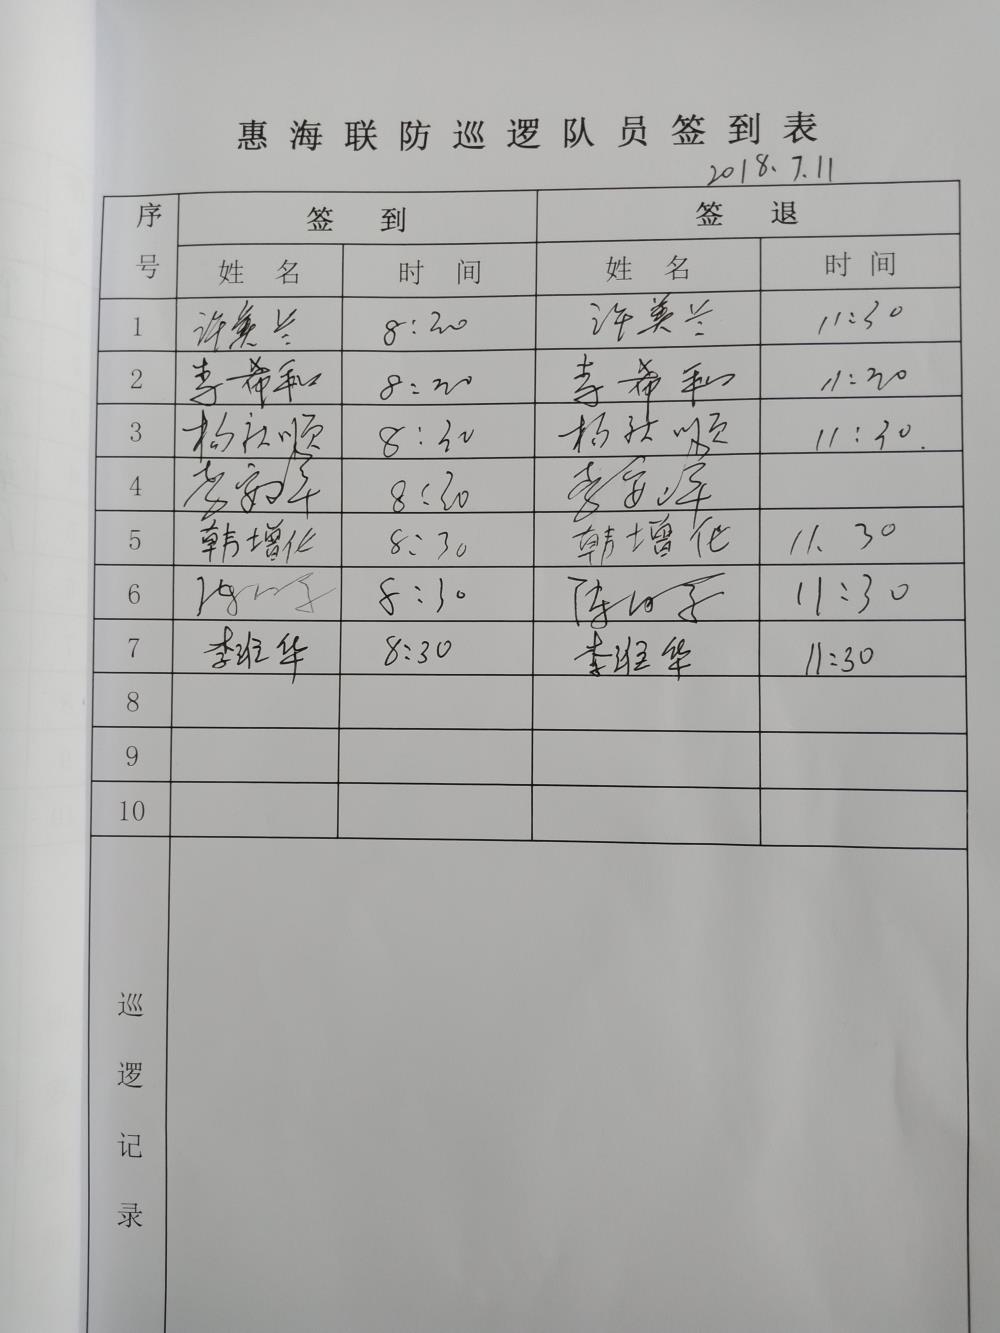 惠海联防巡逻队员签到表
2018.7.11
序号 签到 签退
姓名 时间 姓名 时间
1 许美兰 8:30 许美兰 11:30
2 李希和 8:30 李希和 11:30
3 杨秋顺 8:30 杨秋顺 11:30.
4 李 8:30 李
5 韩增化 8:30 韩增化 11.30
6 陈 8:30 陈 11:30
7 李班华 8:30 李班华 11:30
8
9
10
巡逻记录